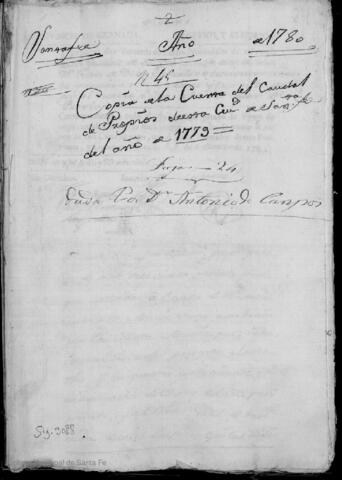 2
Santafee Año de 1780
n 45
Copia de la Cuenta del Caudal
de Propios de esta Ciud de Santa fe
del año de 1779
Fojas 24
dada Por Dn Antonio de Campos
Sig. 9088
al de Santa Fe